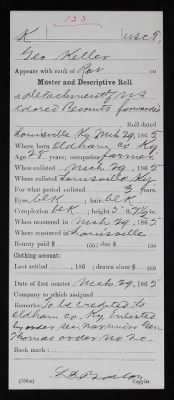 123
K USCT.
Geo Keller
Appears with rank of Pvt on
Muster and Descriptive Roll
of a detachment of U S
Colored Recruits forwarded
Roll dated
Louisville Ky Mch 29, 1865
Where born Oldham Co Ky
Age 28 years; occupation farmer
When enlisted Mch 29, 1865
Where enlisted Louisville Ky
For what period enlisted 3 years.
Eyes blk; hair blk
Complexion blk; height ft. in.
When mustered in Mch 29, 1865
Where mustered in Louisville
Bounty paid $ 100; due $ 100
Clothing account:
Last settled , 186 ; drawn since $ 100
Date of first muster Mch 29, 1865
Company to which assigned
Remarks: To be credited to
Oldham Co. Ky. Enlisted
by order Sec. War under Gen
Thomas order No 20.
Book mark:
(336m) Copyist.